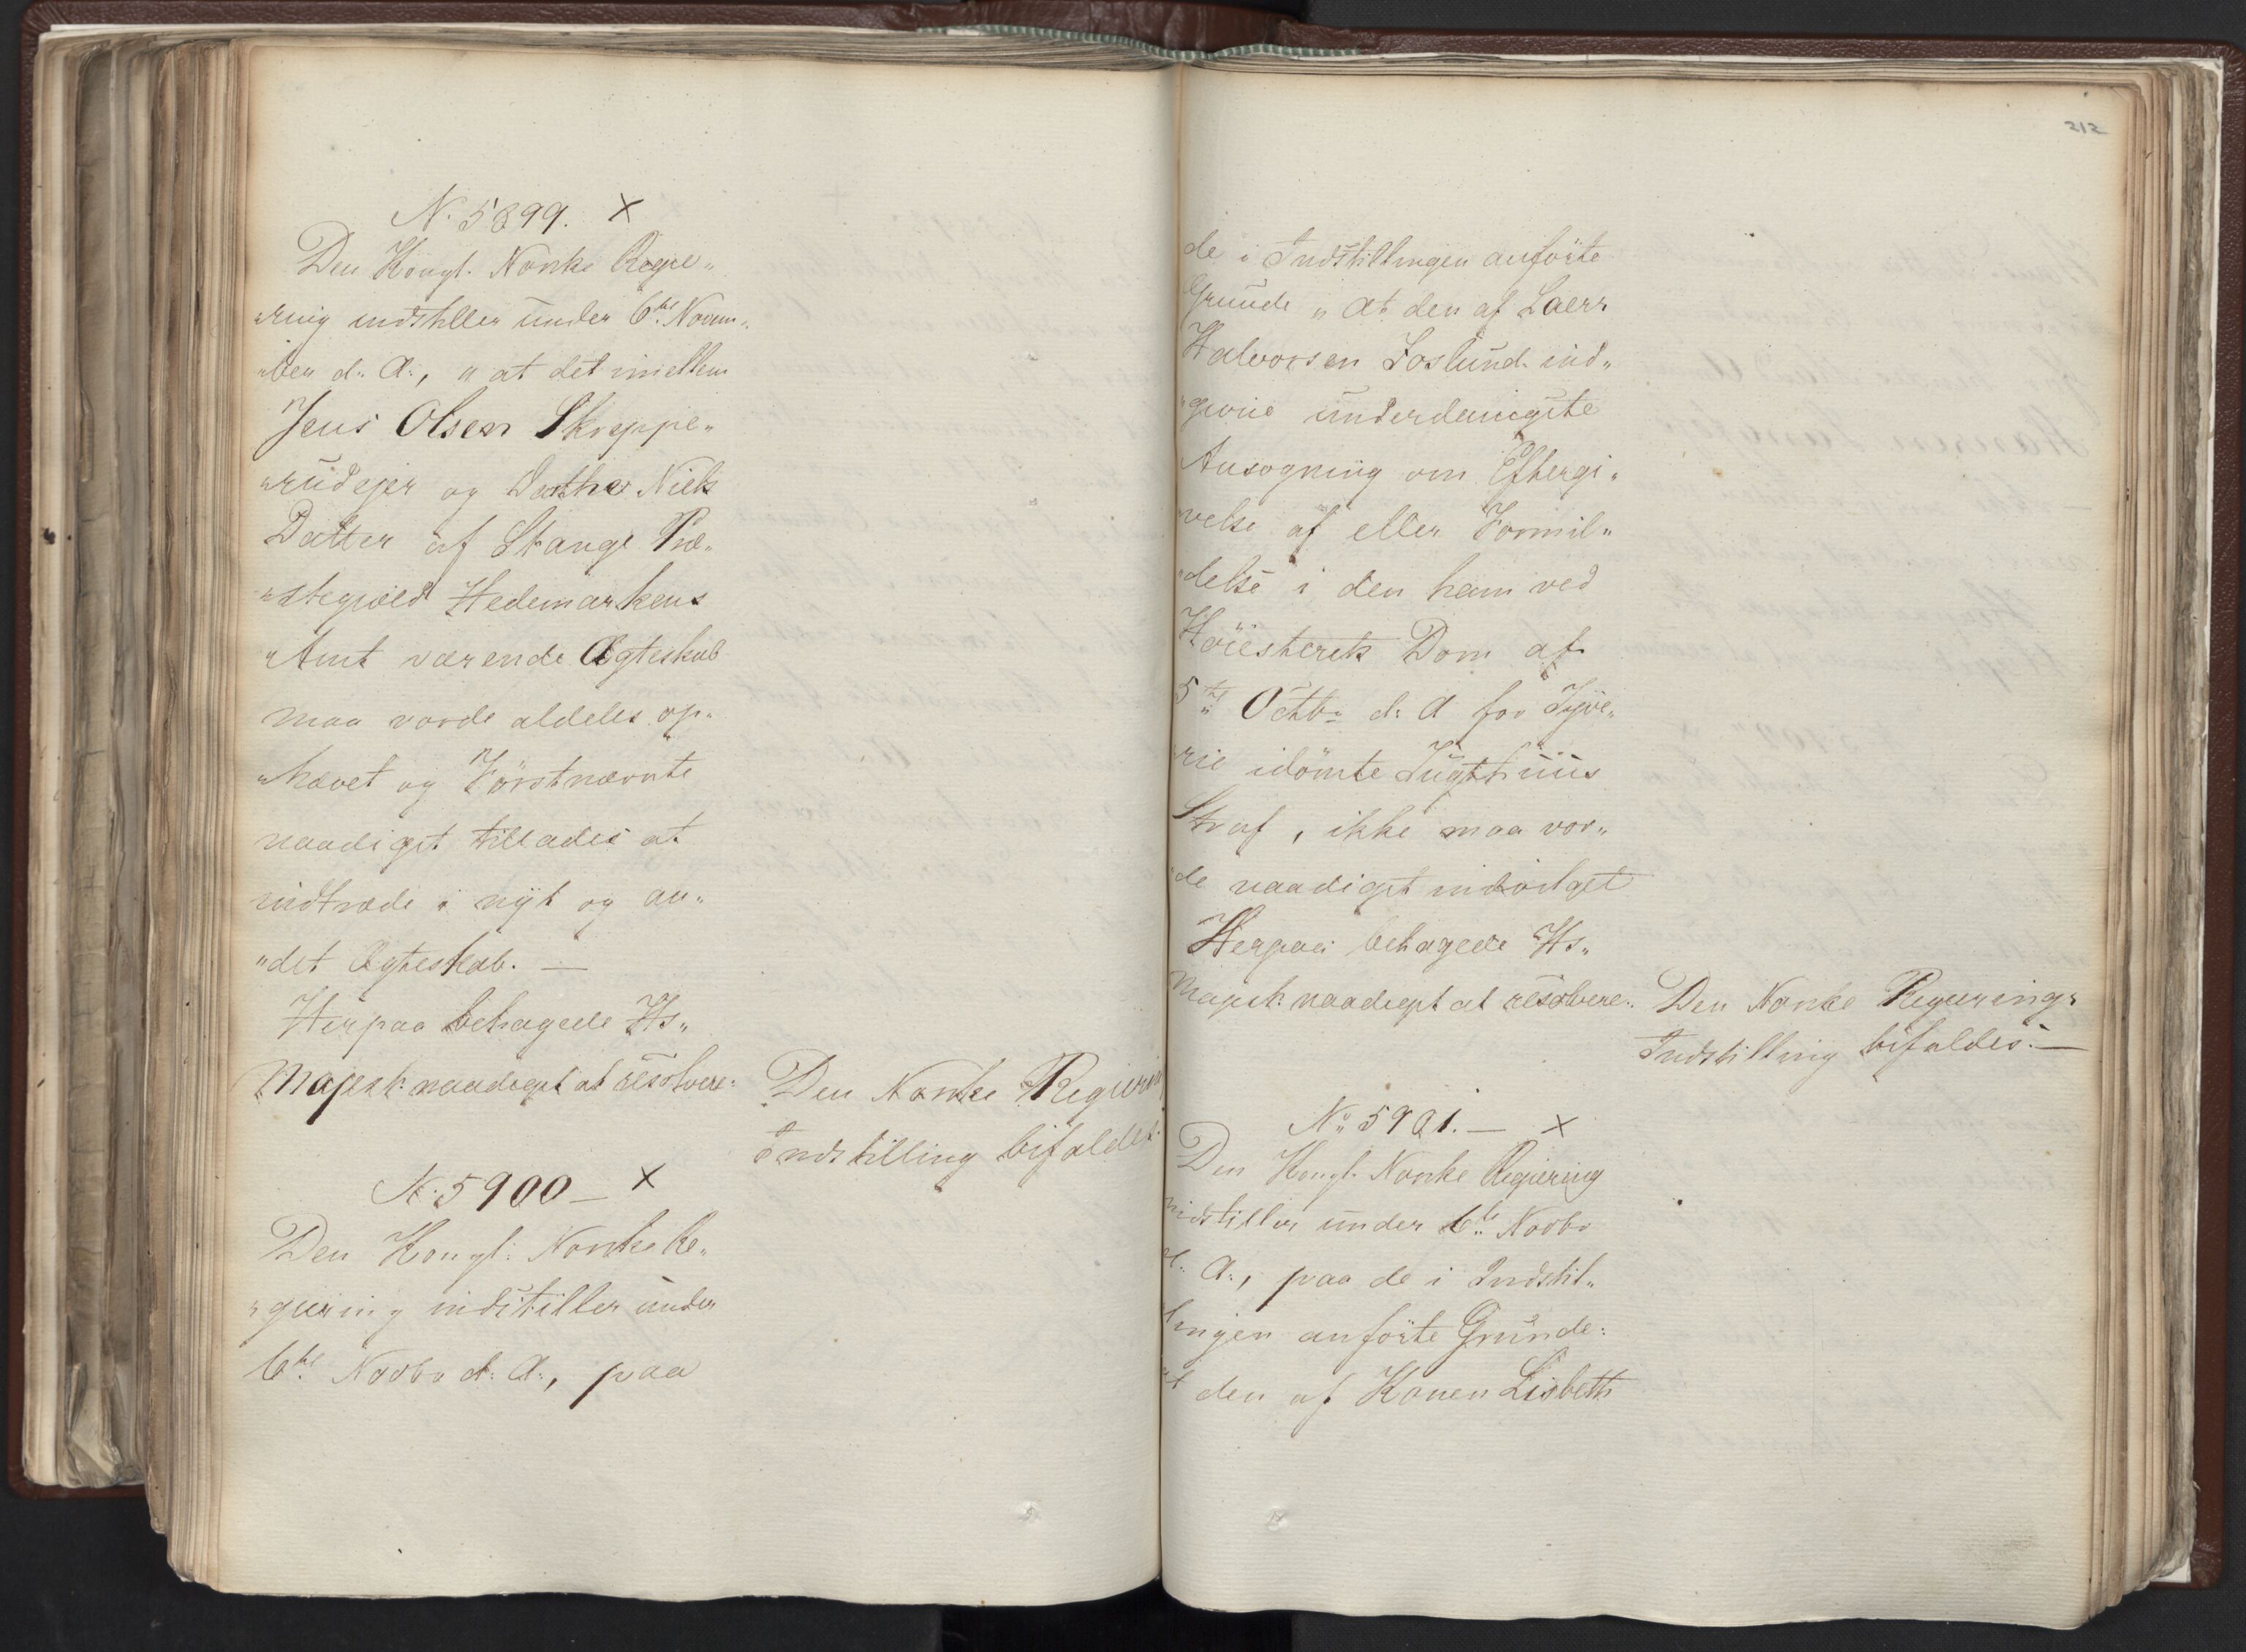 N. 5899. X
Den Kongl. Norske Regje„
„ring indstiller under 6te Novem„
„ber d: A:, „at det imellem
Jens Olsen Skreppe„
„rudejer og Dorthe Niels
Datter af Stange Præ„
„stegield Hedemarkens
Amt værende Ægteskab
maa vorde aldeles op„
„hævet og Förstnævnte
naadigst tillades at
indtræde i nÿt og an„
„det Ægteskab. —
Herpaa behagede Hs„
Majest: naadigst at resolvere:
Den Norske Regiering
Indstilling bifaldes.
N. 5900 — X
Den Kongl: Norske Re„
„giering indstiller under
6te Novbr d: A:, paa
212
de i Indstillingen anförte
Grunde „at den af Laers
Halvorsen Foslund ind„
„givne underdanigste
Ansogning om Eftergi„
„velse af eller Formil„
„delse i den ham ved
Höiesterets Dom af
5te Octbr d: A for Tÿve„
„rie idömte Tugthuus
Straf, ikke maa vor„
„de naadigst indvilget
Herpaa behagede Hs„
Majest: naadigst at resolvere:
Den Norske Regierings
Indstilling bifaldes. —
No 5901. — X
Den Kongl. Norske Regiering
indstiller under 6te Novbr
d: A:, paa de i Indstil„
lingen anförte Grunde:
at den af Konen Lisbeth